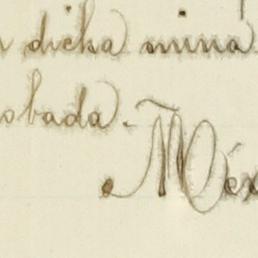 dicha mina
obada.
Méx